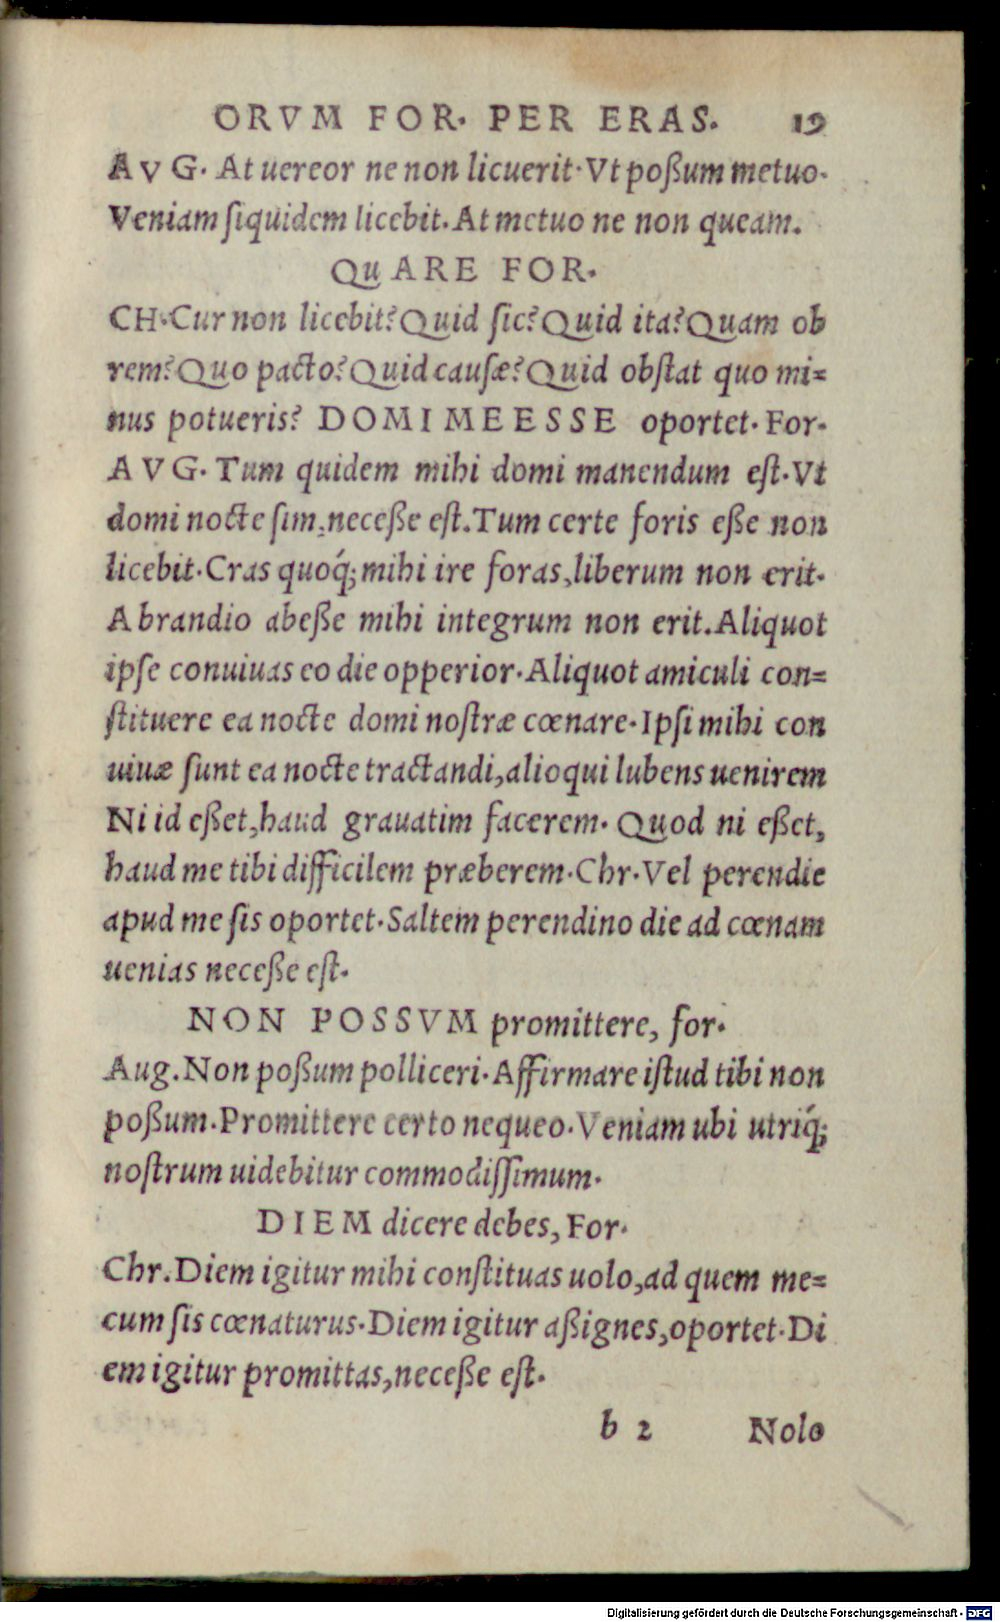 ORVM FOR. PER ERAS. 19
AVG. At uereor ne non licuerit. Vt poßum metuo.
Veniam ſiquidem licebit. At metuo ne non queam.
QuARE FOR.
CH. Cur non licebit? Quid ſic? Quid ita? Quam ob
rem? Quo pacto? Quid cauſæ? Quid obſtat quo mi=
nus potueris? DOMI ME ESSE oportet. For.
AVG. Tum quidem mihi domi manendum eſt. Vt
domi nocte ſim, neceße eſt. Tum certe foris eße non
licebit. Cras quoq́; mihi ire foras, liberum non erit.
A brandio abeße mihi integrum non erit. Aliquot
ipſe conuiuas eo die opperior. Aliquot amiculi con=
ſtituere ea nocte domi noſtræ cœnare. Ipſi mihi con
uiuæ ſunt ea nocte tractandi, alioqui lubens uenirem
Ni id eßet, haud grauatim facerem. Quod ni eßet,
haud me tibi difficilem præberem. Chr. Vel perendie
apud me ſis oportet. Saltem perendino die ad cœnam
uenias neceße eſt.
NON POSSVM promittere, for.
Aug. Non poßum polliceri. Affirmare iſtud tibi non
poßum. Promittere certo nequeo. Veniam ubi utriq́;
noſtrum uidebitur commodiſſimum.
DIEM dicere debes, For.
Chr. Diem igitur mihi conſtituas uolo, ad quem me=
cum ſis cœnaturus. Diem igitur aßignes, oportet. Di
em igitur promittas, neceße eſt.
b 2 Nolo
Digitalisierung gefördert durch die Deutsche Forschungsgemeinschaft - DFG